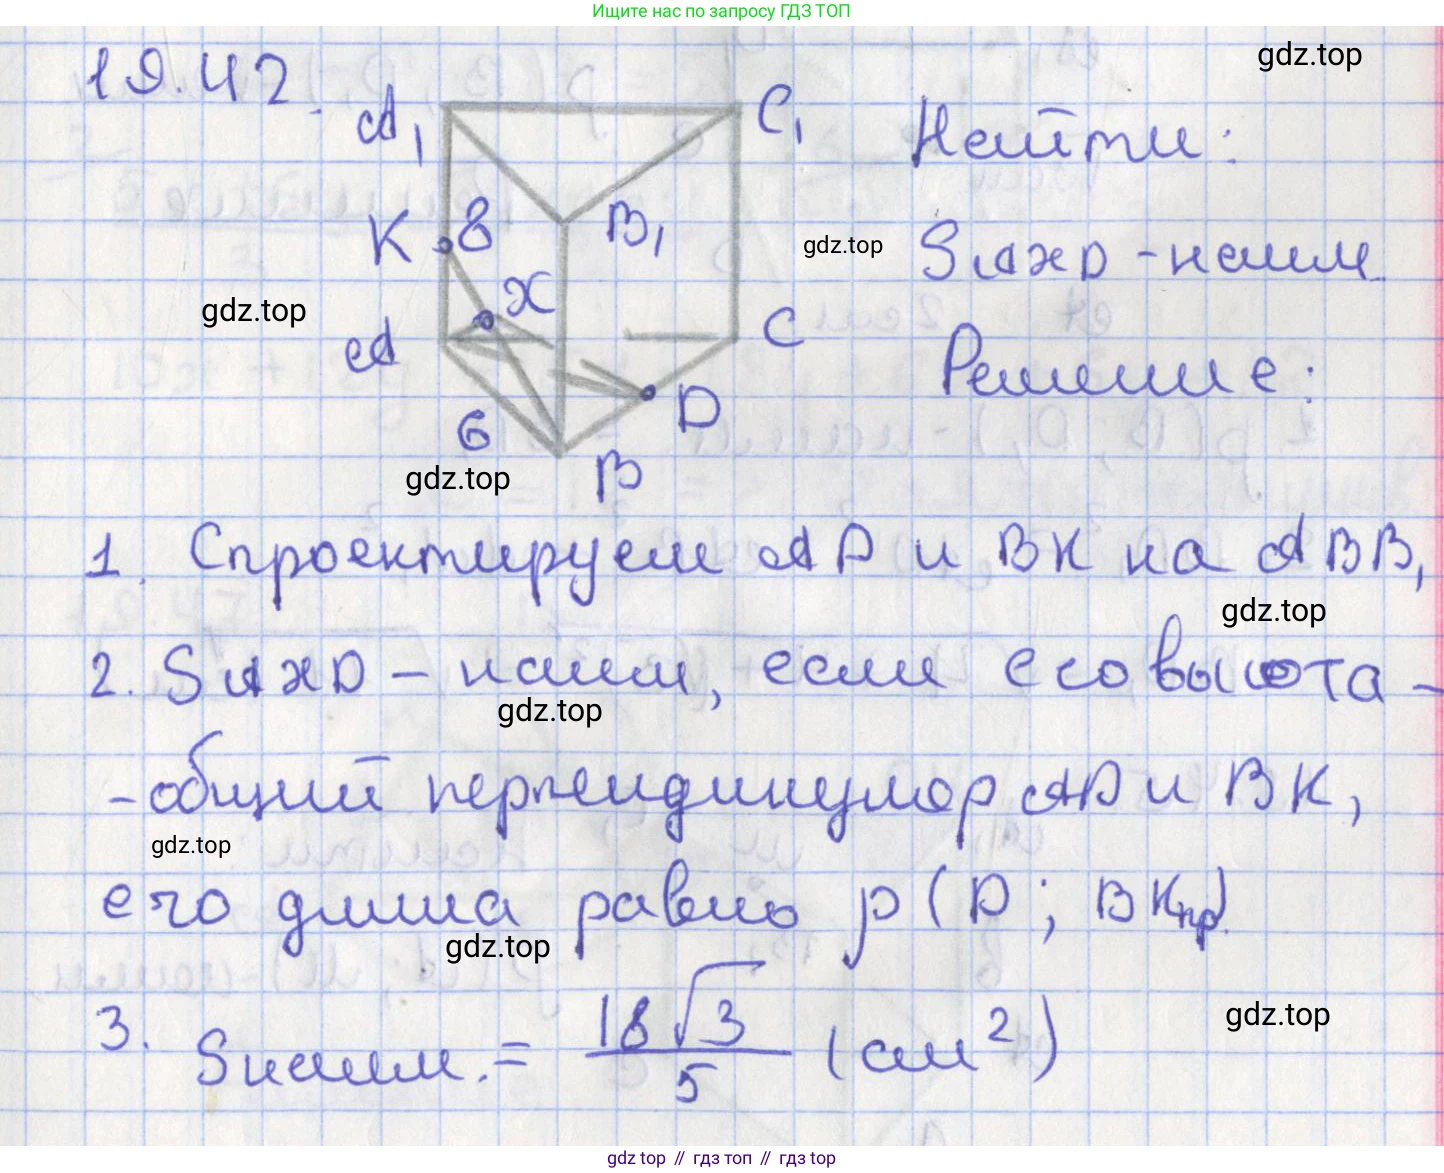 Ищите нас по запросу ГДЗ ТОП
19.42.
gdz.top
A₁
C₁
Найти:
K
8
B₁
gdz.top
S_AXD - наим.
gdz.top
X
A
C
Решение:
6
D
gdz.top
B
1. Спроектируем AD и BK на ABB₁
gdz.top
2. S_AXD - наим, если его высота -
gdz.top
- общий перпендикуляр AD и BK,
gdz.top
его длина равно ρ(D; BKпр)
gdz.top
gdz.top
3. Sнаим. = 18√3/5 (см²)
gdz top // гдз топ // гдз top